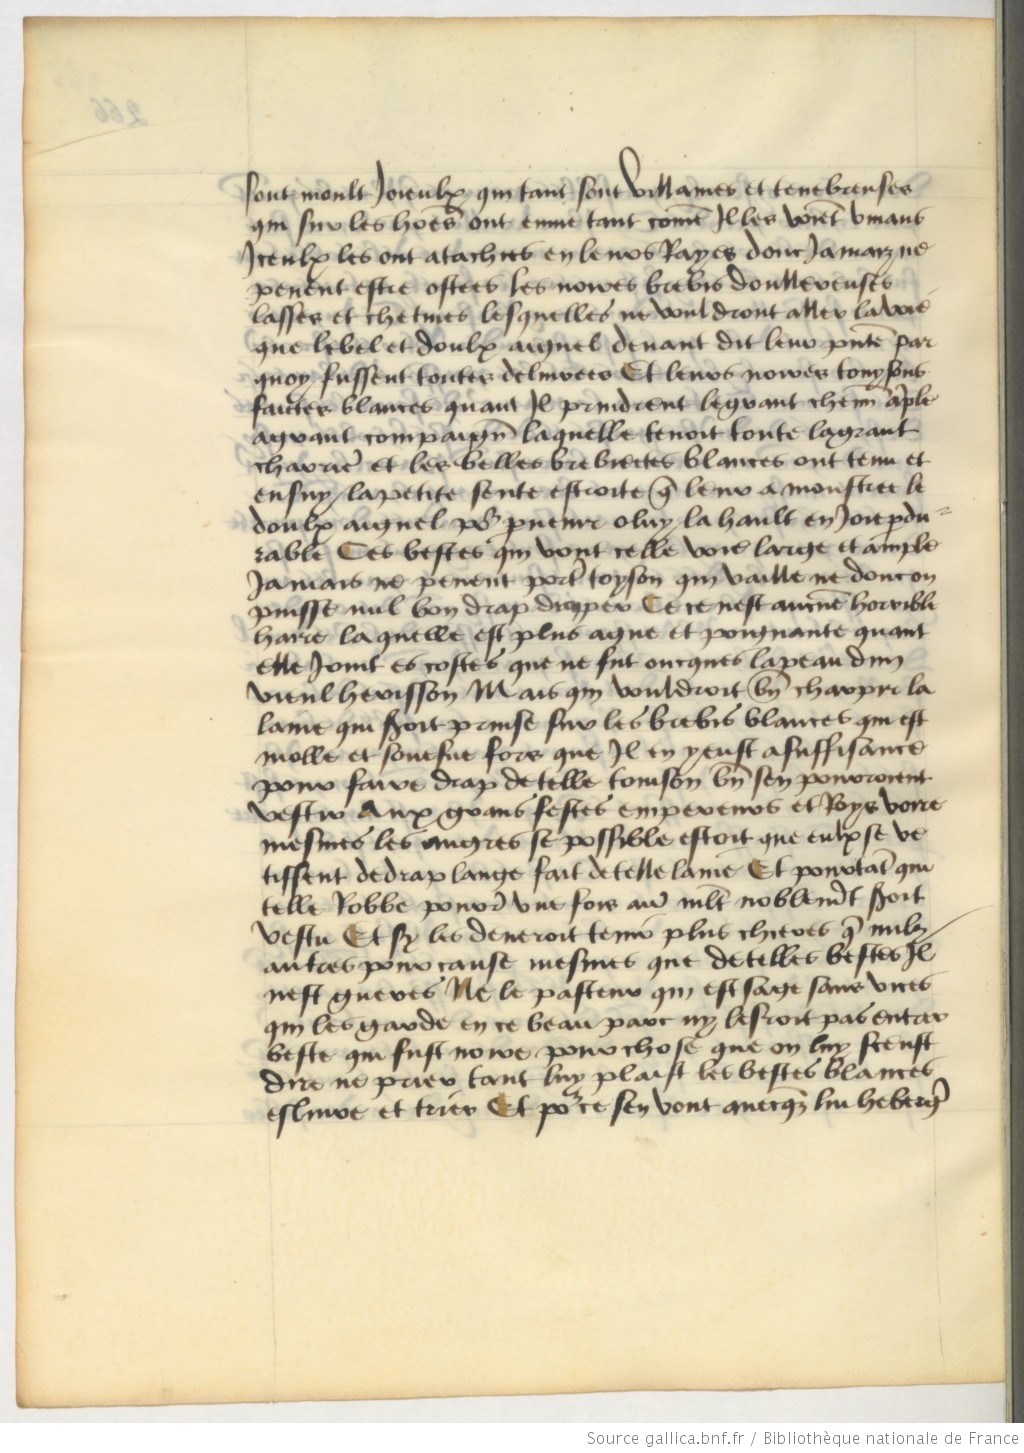 sont moult Joieulx qui tant sont villaines et tenebreuses
qui sur les hoēs ont enuie tant comē Il les voiēt viuans
Iceulx les ont atachies en leurs Rayes donc Jamaiz ne
peuent estre ostees les noires brebis doullereuses
lasses et chetiues lesquelles ne vouldront aller la voie
que le bel et doulx aignel deuant dit leur pñte par
quoy fussent toutes deliurees Et leurs noires toysons
faictes blances quant Il prindrent le grant chemī āple
a grant compaigñ laquelle tenoit toute la grant
charrie᷑ et les belles brebietes blances ont tenu et
ensuy la petite sente estroite q̄ leur a monstree le
doulx aignel po᷑ puenir o luy la hault en Joie pdu=
rable Ces bestes qui vont celle voie large et ample
Jamais ne peuent port᷑ toyson qui vaille ne dont on
puisse nul bon drap draper Ce ce nest aucūe horrible
haire laquelle est plus ague et poignante quant
elle Joint es costes que ne fut oncques la peau dun
vieul herisson Mais qui vouldroit bñ charpir la
laine qui seroit prinse sur les brebis blances qui est
molle et souefue fors que Il en y eust a suffisance
pour faire drap de telle toinson bñ sen pourroient
vestir Aux grans festes empereurs et Roys voire
mesmes les angres se possible estoit que eulx se ve
tissent de drap lange fait de telle laine Et pourtāt qui
telle Robbe pourr᷑ vne fois au᷑ mlt noblemēt seroit
vestu Et sy les deueroit tenir plus chieres q̄ nulz
autres pour cause mesmes que de telles bestes Il
nest gueres Ne le pasteur qui est sage sans vices
qui les garde en ce beau parc ny lesroit pas entrer
beste qui fust noire pour chose que on luy sceust
dire ne prier tant luy plaist les bestes blances
eslire et trier Et po᷑ ce sen vont auecqz lui heberg᷑